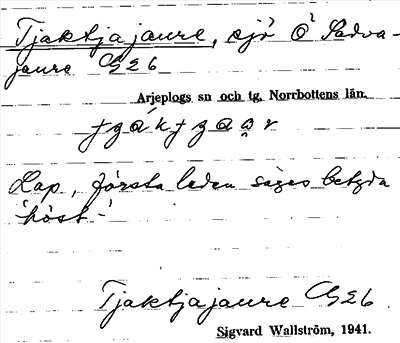 Tjaktjajaure, sjö Ö Sadva-
jaure G26
Arjeplogs sn och tg. Norrbottens län.
Lap, första leden säges betyda
'höst-'
Tjaktjajaure G26
Sigvard Wallström, 1941.